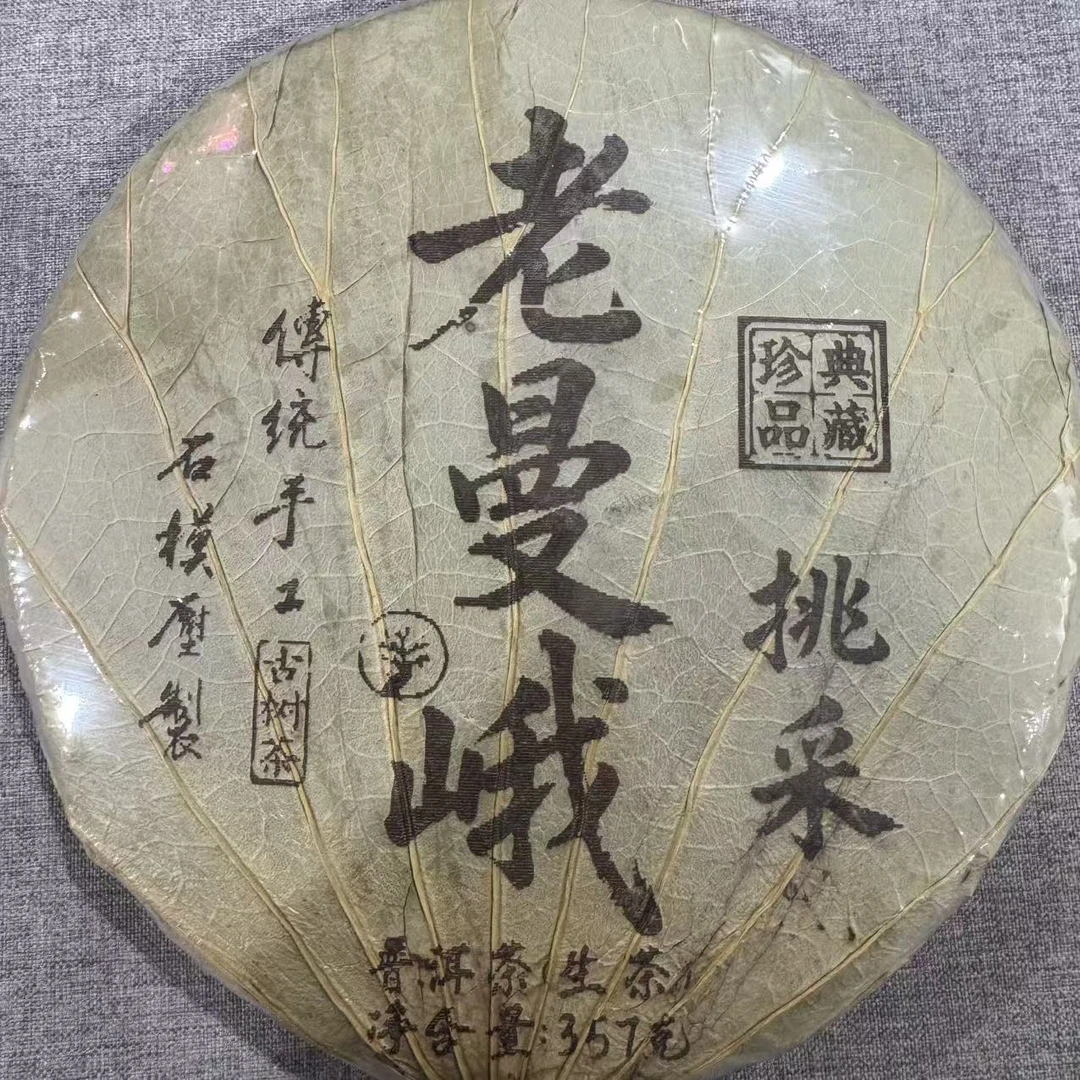 老曼峨
典藏
珍品
挑采
傳统手工
古树茶
石模壓製
普洱茶(生茶)
净含量:357克